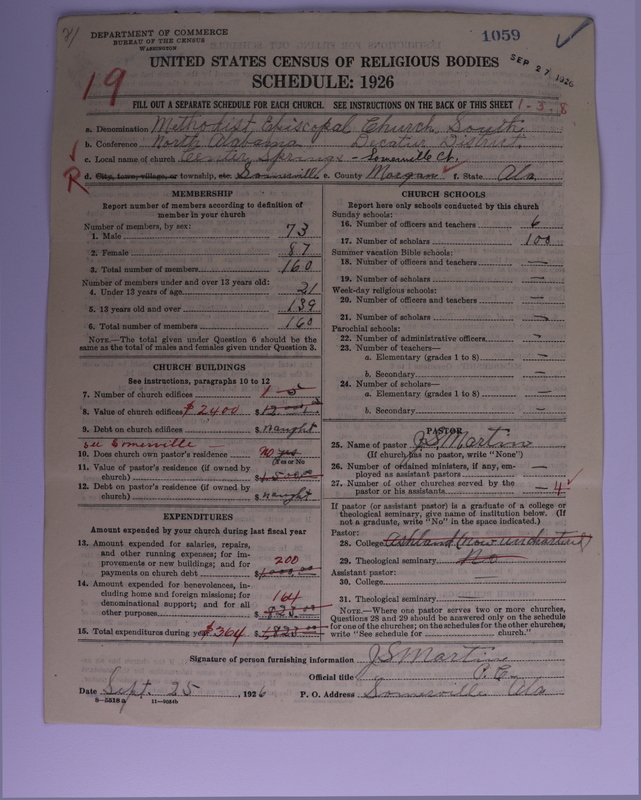 DEPARTMENT OF COMMERCE
BUREAU OF THE CENSUS
WASHINGTON
1059
SEP 27 1926
19
UNITED STATES CENSUS OF RELIGIOUS BODIES
SCHEDULE: 1926
FILL OUT A SEPARATE SCHEDULE FOR EACH CHURCH. SEE INSTRUCTIONS ON THE BACK OF THIS SHEET 1-3-8
a. Denomination Methodist Episcopal Church, South
b. Conference North Alabama Decatur District
c. Local name of church Center Springs - Somerville Ct.
R
d. City, town, village, or township, etc. Somerville e. County Morgan f. State Ala
MEMBERSHIP
Report number of members according to definition of
member in your church
Number of members, by sex:
1. Male 73
2. Female 87
3. Total number of members 160
Number of members under and over 13 years old:
4. Under 13 years of age 21
5. 13 years old and over 139
6. Total number of members 160
NOTE.—The total given under Question 6 should be the
same as the total of males and females given under Question 3.
CHURCH BUILDINGS
See instructions, paragraphs 10 to 12
7. Number of church edifices 1 5
8. Value of church edifices $2400 $
9. Debt on church edifices $ naught
see Somerville
10. Does church own pastor's residence? no yes
(Yes or No
11. Value of pastor's residence (if owned by
church) $
12. Debt on pastor's residence (if owned by
church) $ naught
EXPENDITURES
Amount expended by your church during last fiscal year
13. Amount expended for salaries, repairs,
and other running expenses; for im-
provements or new buildings; and for
payments on church debt 200 $
14. Amount expended for benevolences, in-
cluding home and foreign missions; for
denominational support; and for all
other purposes 164 $ 823.00
15. Total expenditures during year $364 $ 1,823.00
CHURCH SCHOOLS
Report here only schools conducted by this church
Sunday schools:
16. Number of officers and teachers 6
17. Number of scholars 100
Summer vacation Bible schools:
18. Number of officers and teachers —
19. Number of scholars —
Week-day religious schools:
20. Number of officers and teachers —
21. Number of scholars —
Parochial schools:
22. Number of administrative officers —
23. Number of teachers—
a. Elementary (grades 1 to 8) —
b. Secondary —
24. Number of scholars—
a. Elementary (grades 1 to 8) —
b. Secondary —
PASTOR
25. Name of pastor J S Martin
(If church has no pastor, write "None")
26. Number of ordained ministers, if any, em-
ployed as assistant pastors —
27. Number of other churches served by the
pastor or his assistants 4
If pastor (or assistant pastor) is a graduate of a college or
theological seminary, give name of institution below. (If
not a graduate, write "No" in the space indicated.)
Pastor:
28. College Ashland (now unchartered)
29. Theological seminary No
Assistant pastor:
30. College —
31. Theological seminary —
NOTE.—Where one pastor serves two or more churches,
Questions 28 and 29 should be answered only on the schedule
for one of the churches; on the schedules for the other churches,
write "See schedule for church."
Signature of person furnishing information J S Martin
Official title P. C.
Date Sept. 25, 1926 P. O. Address Somerville Ala
8—5518a 11—9034b